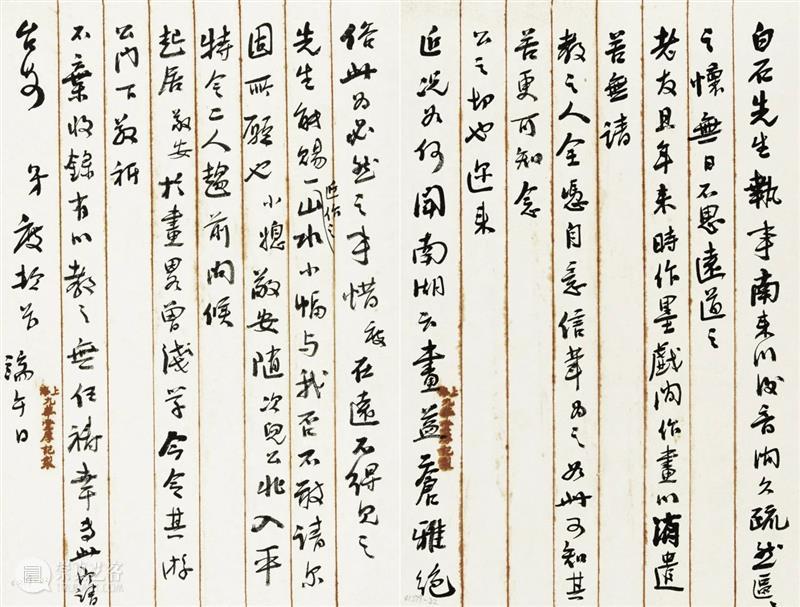 白石先生執事南來以後音問久疏然區區
之懷無日不思遠道之
老友且年來時作墨戲間作畫以消遣
苦無請
教之人全憑自意信筆為之如此可知其
苦更可知念
公之切也邇來
近況如何聞南湖云畫益蒼雅絕
上海九華堂厚記製
俗此為必然之事惜度在遠不得見之
先生能賜一近作之山水小幅與我否不敢請尔
固所願也小媳敬安隨次兒公兆入平
特令二人趨前問候
起居敬安於畫略曾淺學今令其游
公門下敬祈
不棄收錄有以教之無任禱幸專此即請
台安 弟度 端午日
上海九華堂厚記製